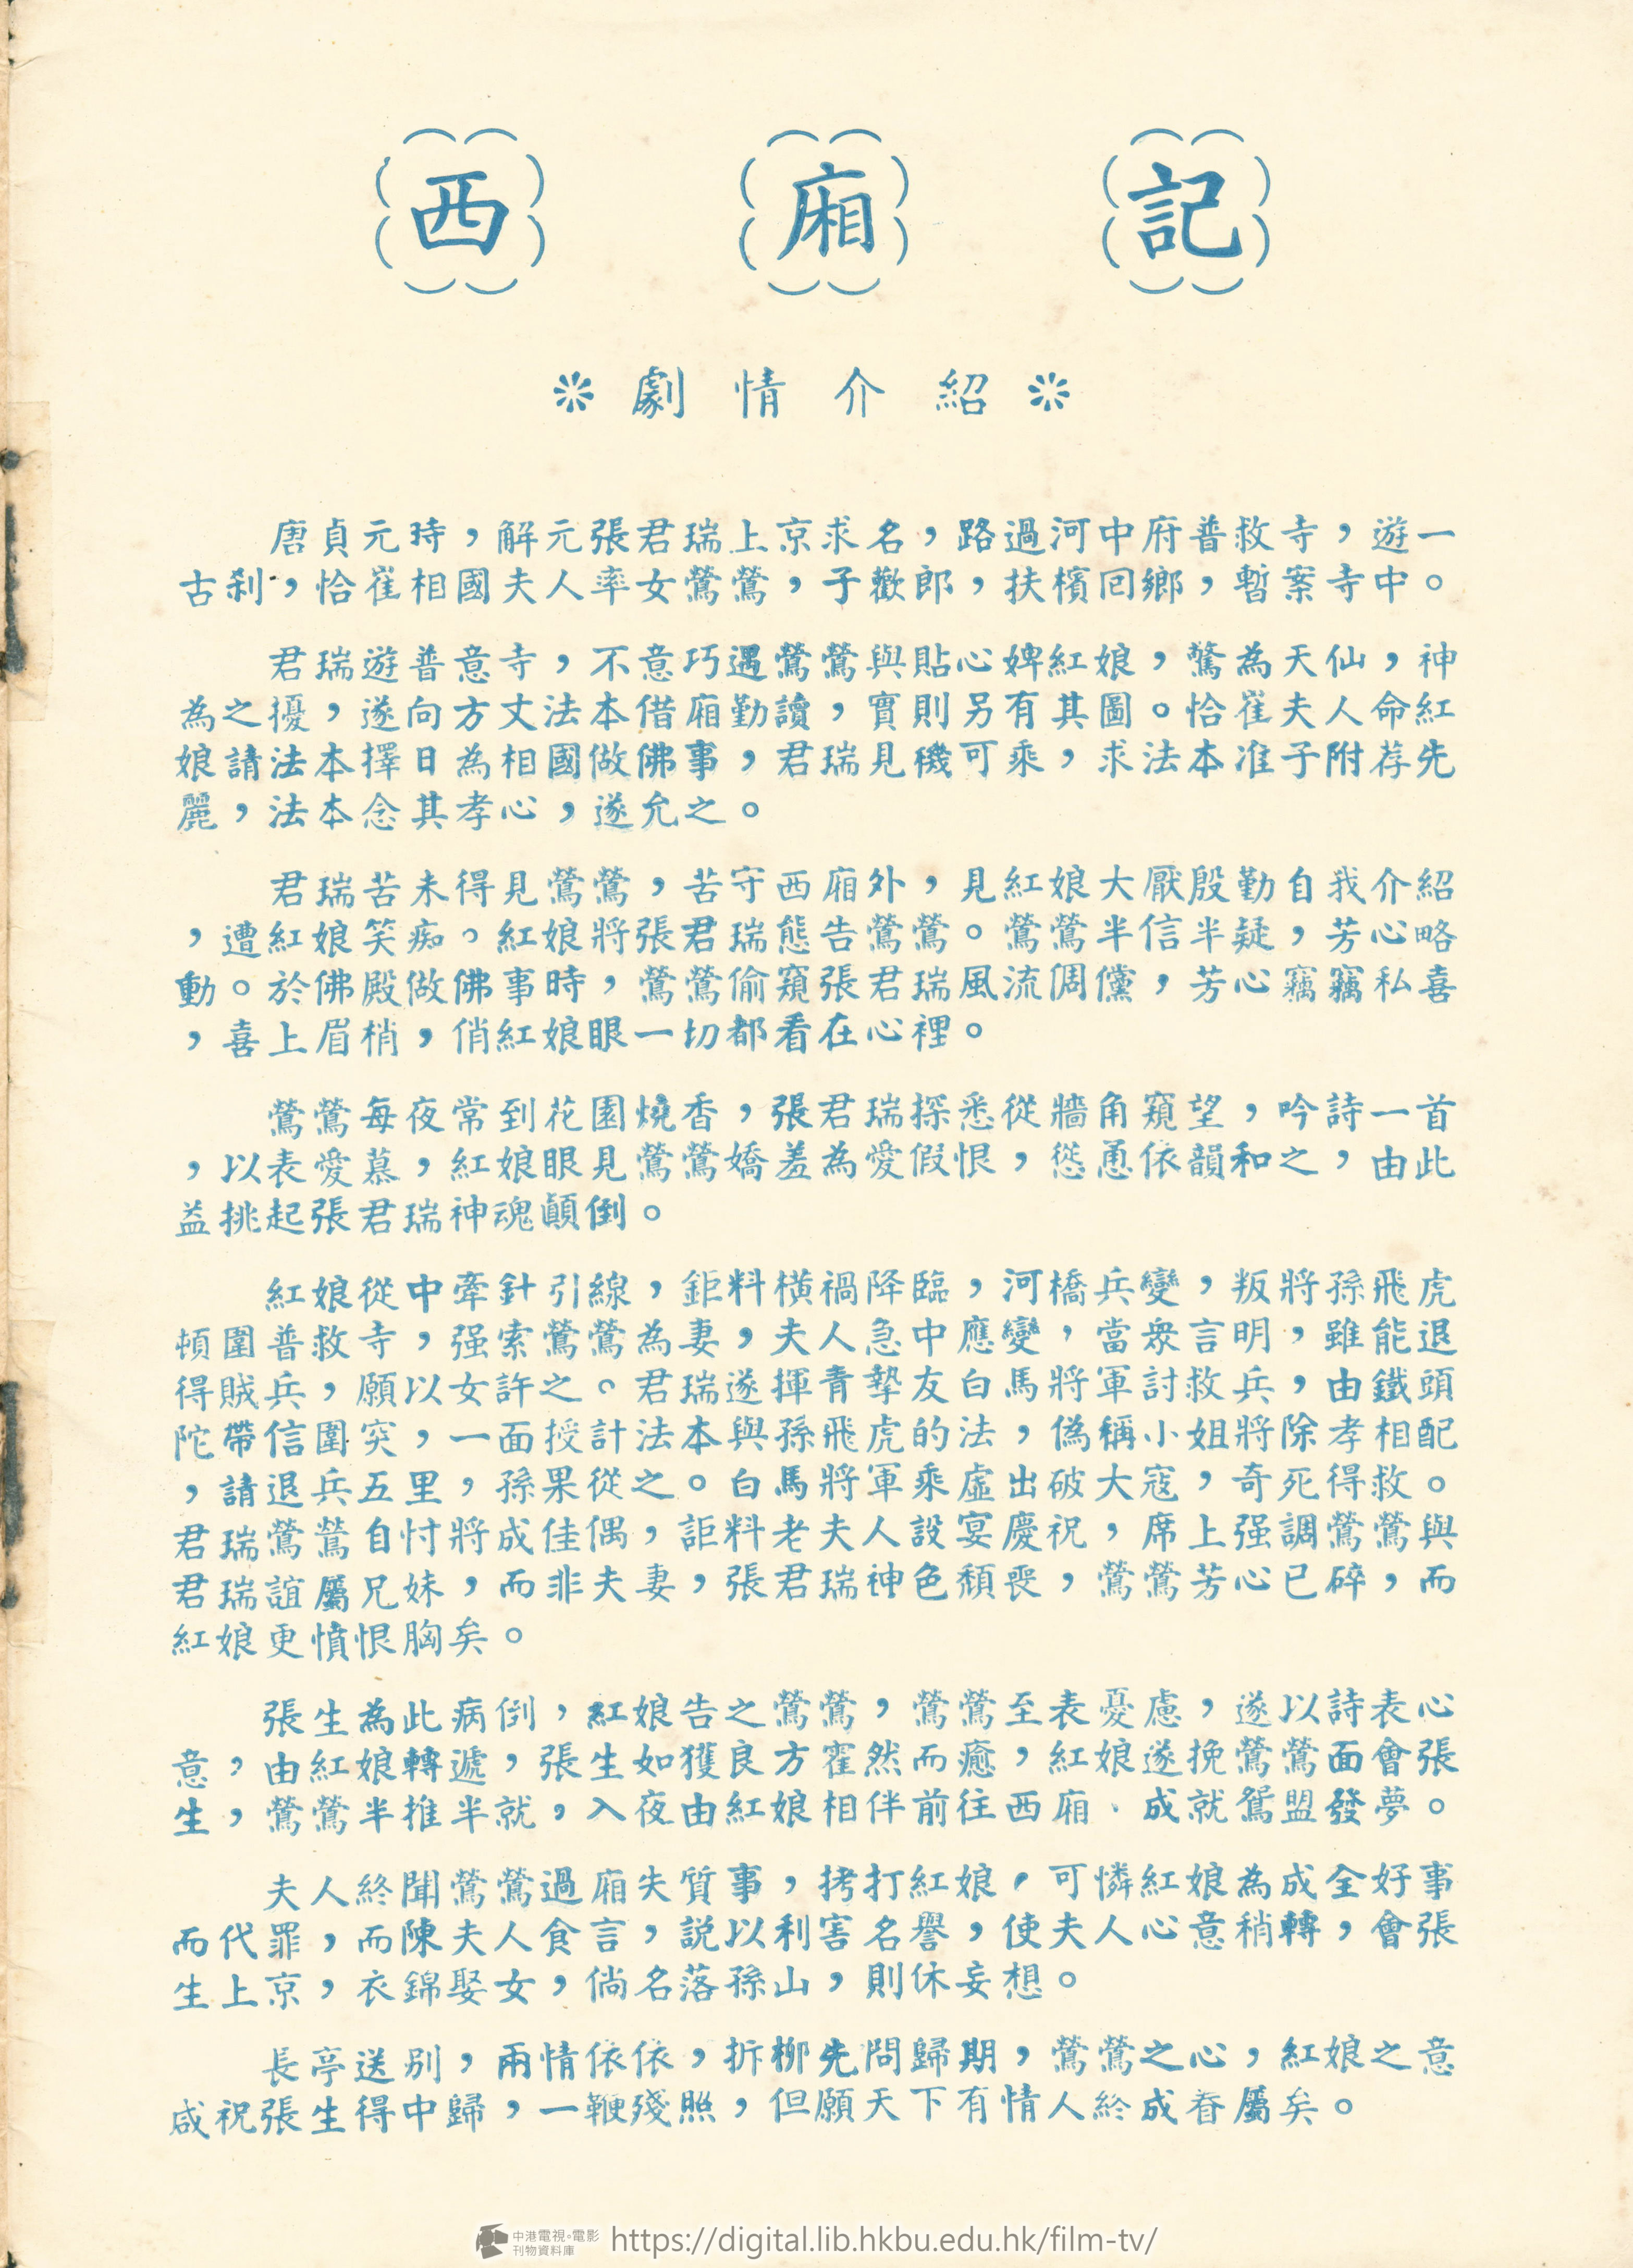 西廂記
劇情介紹
唐貞元時，解元張君瑞上京求名，路過河中府普救寺，遊一
古刹，恰崔相國夫人率女鶯鶯，子歡郎，扶櫬回鄉，暫案寺中。
君瑞遊普意寺，不意巧遇鶯鶯與貼心婢紅娘，驚為天仙，神
為之擾，遂向方丈法本借廂勤讀，實則另有其圖。恰崔夫人命紅
娘請法本擇日為相國做佛事，君瑞見機可乘，求法本准予附荐先
麗，法本念其孝心，遂允之。
君瑞苦未得見鶯鶯，苦守西廂外，見紅娘大厭殷勤自我介紹
，遭紅娘笑痴。紅娘將張君瑞態告鶯鶯。鶯鶯半信半疑，芳心略
動。於佛殿做佛事時，鶯鶯偷窺張君瑞風流倜儻，芳心竊竊私喜
，喜上眉梢，俏紅娘眼一切都看在心裡。
鶯鶯每夜常到花園燒香，張君瑞探悉從牆角窺望，吟詩一首
，以表愛慕，紅娘眼見鶯鶯嬌羞為愛假恨，慫恿依韻和之，由此
益挑起張君瑞神魂顛倒。
紅娘從中牽針引線，鉅料橫禍降臨，河橋兵變，叛將孫飛虎
頓圍普救寺，强索鶯鶯為妻，夫人急中應變，當衆言明，雖能退
得賊兵，願以女許之。君瑞遂揮青摯友白馬將軍討救兵，由鐵頭
陀帶信圍突，一面授計法本與孫飛虎的法，偽稱小姐將除孝相配
，請退兵五里，孫果從之。白馬將軍乘虛出破大寇，奇死得救。
君瑞鶯鶯自忖將成佳偶，詎料老夫人設宴慶祝，席上强調鶯鶯與
君瑞誼屬兄妹，而非夫妻，張君瑞神色頹喪，鶯鶯芳心已碎，而
紅娘更憤恨胸矣。
張生為此病倒，紅娘告之鶯鶯，鶯鶯至表憂慮，遂以詩表心
意，由紅娘轉遞，張生如獲良方霍然而癒，紅娘遂挽鶯鶯面會張
生，鶯鶯半推半就，入夜由紅娘相伴前往西廂．成就鴛盟發夢。
夫人終聞鶯鶯過廂失質事，拷打紅娘，可憐紅娘為成全好事
而代罪，而陳夫人食言，説以利害名譽，使夫人心意稍轉，會張
生上京，衣錦娶女，倘名落孫山，則休妄想。
長亭送别，兩情依依，拆柳先問歸期，鶯鶯之心，紅娘之意
咸祝張生得中歸，一鞭殘照，但願天下有情人終成眷屬矣。
中港電視。電影
刊物資料庫
https://digital.lib.hkbu.edu.hk/film-tv/